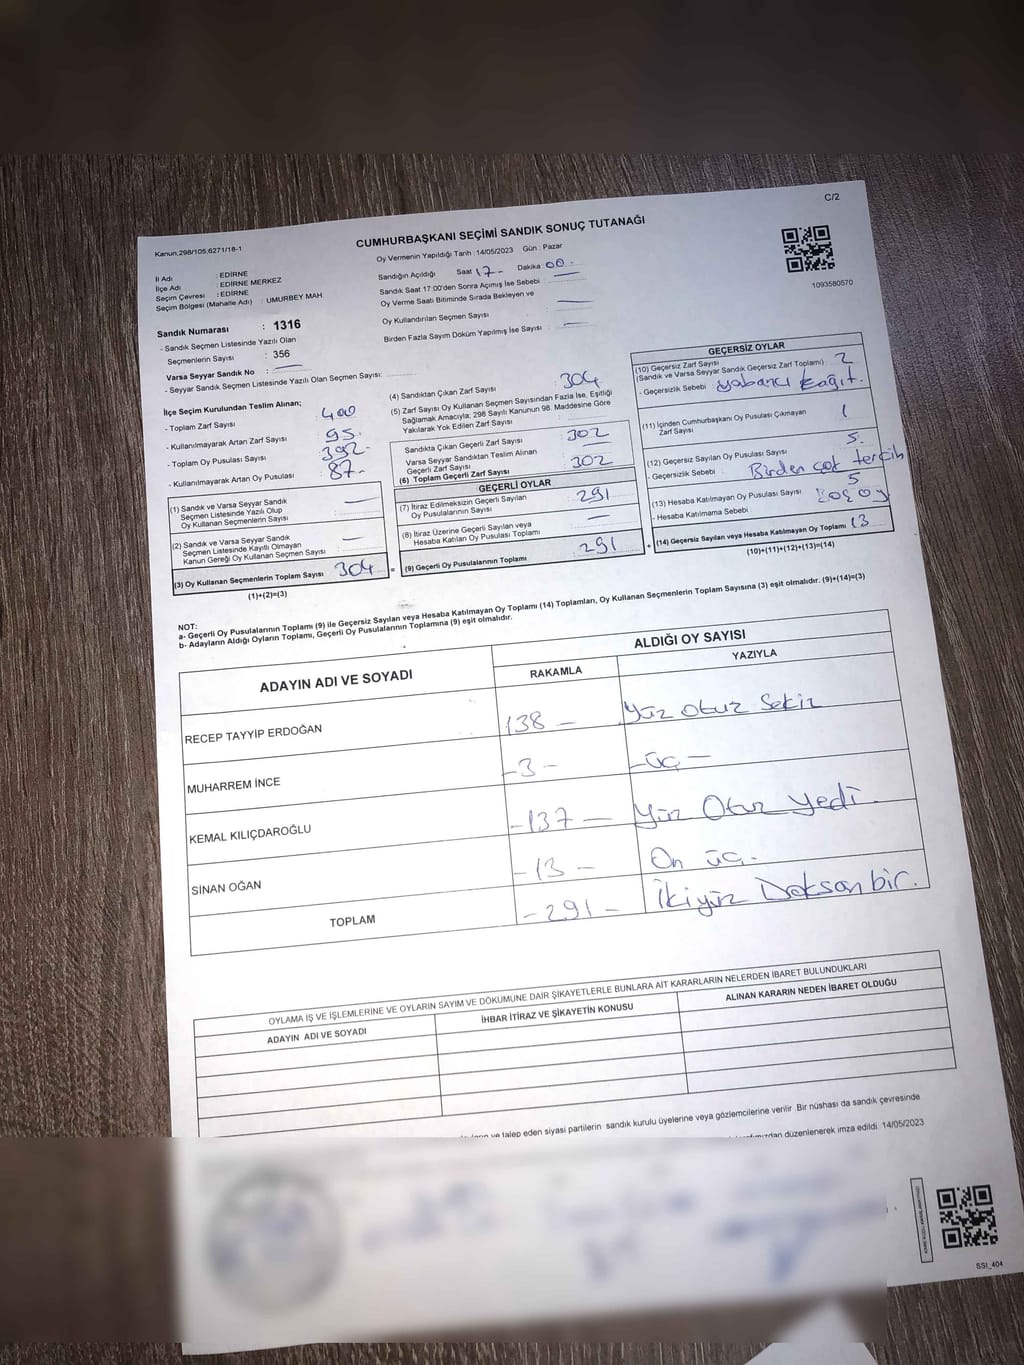 C/2
Kanun:298/105;6271/18-1
CUMHURBAŞKANI SEÇİMİ SANDIK SONUÇ TUTANAĞI
Oy Vermenin Yapıldığı Tarih :14/05/2023 Gün : Pazar
İl Adı : EDİRNE
İlçe Adı : EDİRNE MERKEZ
Seçim Çevresi : EDİRNE
Seçim Bölgesi (Mahalle Adı) : UMURBEY MAH.
Sandık Numarası : 1316
- Sandık Seçmen Listesinde Yazılı Olan
Seçmenlerin Sayısı : 356
Varsa Seyyar Sandık No :
- Seyyar Sandık Seçmen Listesinde Yazılı Olan Seçmen Sayısı:
Sandığın Açıldığı Saat 17- Dakika : 00.
Sandık Saat 17:00'den Sonra Açımış İse Sebebi
Oy Verme Saati Bitiminde Sırada Bekleyen ve
Oy Kullandırılan Seçmen Sayısı :
Birden Fazla Sayım Döküm Yapılmış İse Sayısı :
1093580570
İlçe Seçim Kurulundan Teslim Alınan;
- Toplam Zarf Sayısı : 400
- Kullanılmayarak Artan Zarf Sayısı : 95.
- Toplam Oy Pusulası Sayısı : 392-
- Kullanılmayarak Artan Oy Pusulası : 87-
(1) Sandık ve Varsa Seyyar Sandık
Seçmen Listesinde Yazılı Olup
Oy Kullanan Seçmenlerin Sayısı
(2) Sandık ve Varsa Seyyar Sandık
Seçmen Listesinde Kayıtlı Olmayan
Kanun Gereği Oy Kullanan Seçmen Sayısı
(3) Oy Kullanan Seçmenlerin Toplam Sayısı 304
(1)+(2)=(3)
(4) Sandıktan Çıkan Zarf Sayısı : 304
(5) Zarf Sayısı Oy Kullanan Seçmen Sayısından Fazla İse, Eşitliği
Sağlamak Amacıyla; 298 Sayılı Kanunun 98. Maddesine Göre
Yakılarak Yok Edilen Zarf Sayısı :
Sandıkta Çıkan Geçerli Zarf Sayısı : 302
Varsa Seyyar Sandıktan Teslim Alınan
Geçerli Zarf Sayısı
(6) Toplam Geçerli Zarf Sayısı : 302
GEÇERLİ OYLAR
(7) İtiraz Edilmeksizin Geçerli Sayılan
Oy Pusulalarının Sayısı : 291
(8) İtiraz Üzerine Geçerli Sayılan veya
Hesaba Katılan Oy Pusulası Toplamı :
= (9) Geçerli Oy Pusulalarının Toplamı : 291
GEÇERSİZ OYLAR
(10) Geçersiz Zarf Sayısı
(Sandık ve Varsa Seyyar Sandık Geçersiz Zarf Toplamı) : 2
- Geçersizlik Sebebi : yabancı kağıt.
(11) İçinden Cumhurbaşkanı Oy Pusulası Çıkmayan
Zarf Sayısı 1
(12) Geçersiz Sayılan Oy Pusulası Sayısı 5.
- Geçersizlik Sebebi : Birden çok tercih
(13) Hesaba Katılmayan Oy Pusulası Sayısı 5
- Hesaba Katılmama Sebebi
+ (14) Geçersiz Sayılan veya Hesaba Katılmayan Oy Toplamı 13
(10)+(11)+(12)+(13)=(14)
NOT:
a- Geçerli Oy Pusulalarının Toplamı (9) ile Geçersiz Sayılan veya Hesaba Katılmayan Oy Toplamı (14) Toplamları, Oy Kullanan Seçmenlerin Toplam Sayısına (3) eşit olmalıdır. (9)+(14)=(3)
b- Adayların Aldığı Oyların Toplamı, Geçerli Oy Pusulalarının Toplamına (9) eşit olmalıdır.
ADAYIN ADI VE SOYADI
ALDIĞI OY SAYISI
RAKAMLA YAZIYLA
RECEP TAYYİP ERDOĞAN 138 - Yüz otuz Sekiz
MUHARREM İNCE -3- -üç-
KEMAL KILIÇDAROĞLU -137- Yüz Otuz yedi.
SİNAN OĞAN -13- On üç.
TOPLAM -291- İkiyüz Doksan bir.
OYLAMA İŞ VE İŞLEMLERİNE VE OYLARIN SAYIM VE DÖKÜMÜNE DAİR ŞİKAYETLERLE BUNLARA AİT KARARLARIN NELERDEN İBARET BULUNDUKLARI
ADAYIN ADI VE SOYADI İHBAR İTİRAZ VE ŞİKAYETİN KONUSU ALINAN KARARIN NEDEN İBARET OLDUĞU
ve talep eden siyasi partilerin sandık kurulu üyelerine veya gözlemcilerine verilir. Bir nüshası da sandık çevresinde
düzenlenerek imza edildi. 14/05/2023
SSI_404